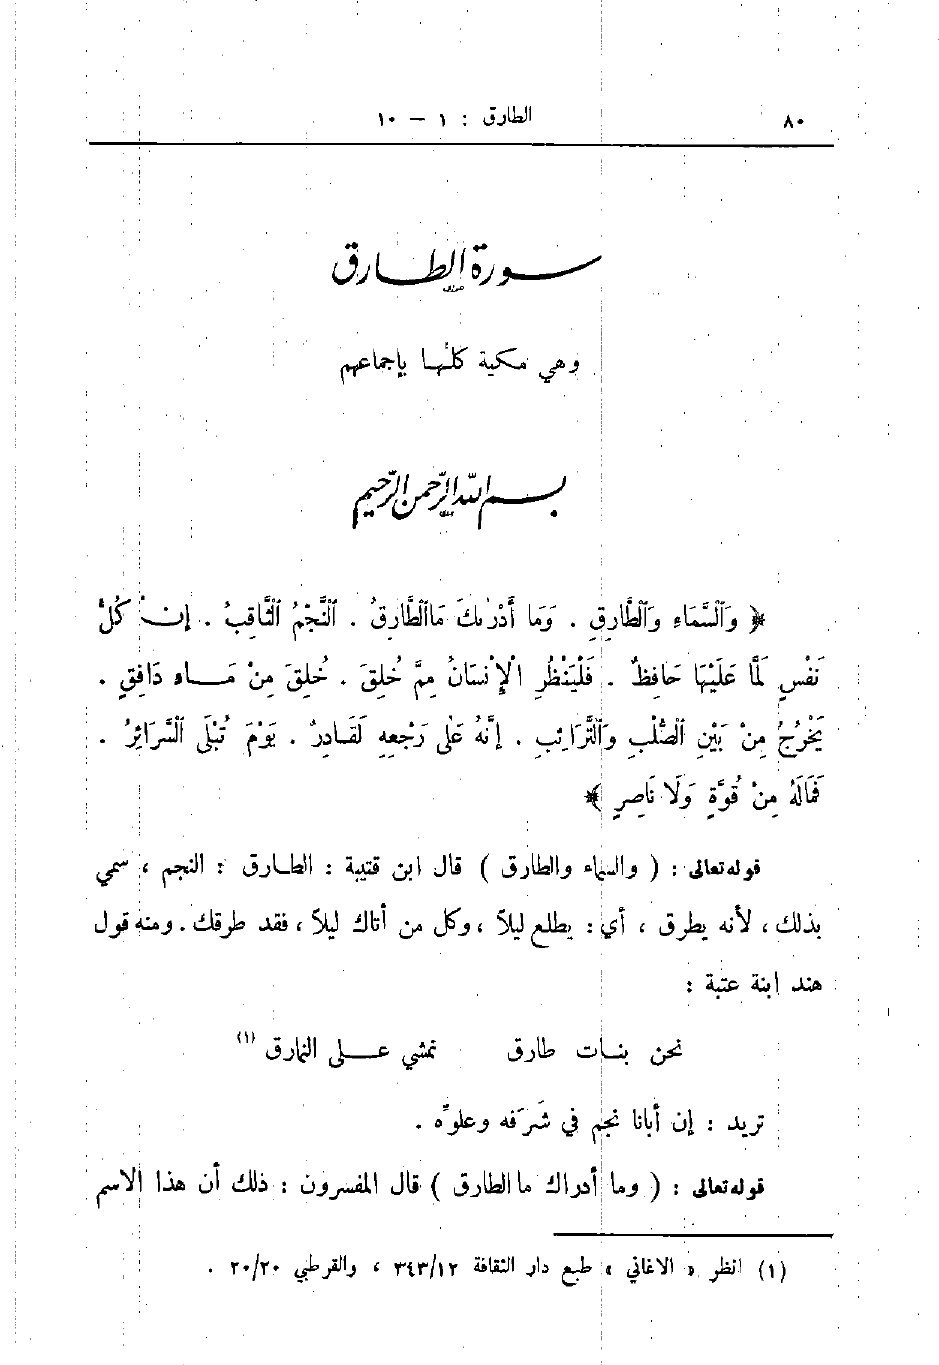 ٨٠
الطارق : ١ – ١٠
سورة الطارق
وهي مكية كلُّها بإجماعهم
بسم الله الرّحمن الرّحيم
﴿ وَٱلسَّمَاءِ وَٱلطَّارِقِ . وَمَا أَدْرٰىكَ مَاالطَّارِقُ . ٱلنَّجْمُ ٱلثَّاقِبُ . إِنْ كُلُّ
نَفْسٍ لَمَّا عَلَيْهَا حَافِظٌ . فَلْيَنْظُرِ الْإِنْسَانُ مِمَّ خُلِقَ . خُلِقَ مِنْ مَاء دَافِقٍ .
يَخْرُجُ مِنْ بَيْنِ ٱلصُّلْبِ وَٱلتَّرَائِبِ . إِنَّهُ عَلَى رَجْعِهِ لَقَادِرٌ . يَوْمَ تُبْلَى ٱلسَّرَائِرُ .
فَمَالَهُ مِنْ قُوَّةٍ وَلَا نَاصِرٍ ﴾
قوله تعالى : ( والسماء والطارق ) قال ابن قتيبة : الطارق : النجم ، سمي
بذلك ، لأنه يطرق ، أي : يطلع ليلاً ، وكل من أتاك ليلاً ، فقد طرقك . ومنه قول
هند ابنة عتبة :
نحن بنات طارق نمشي على النمارق (١)
تريد : إن أبانا نجم في شَرَفه وعلوِّه .
قوله تعالى : ( وما أدراك ما الطارق ) قال المفسرون : ذلك أن هذا الاسم
(١) انظر « الاغاني » طبع دار الثقافة ٣٤٣/١٢ ، والقرطبي ٢٠/٢٠ .